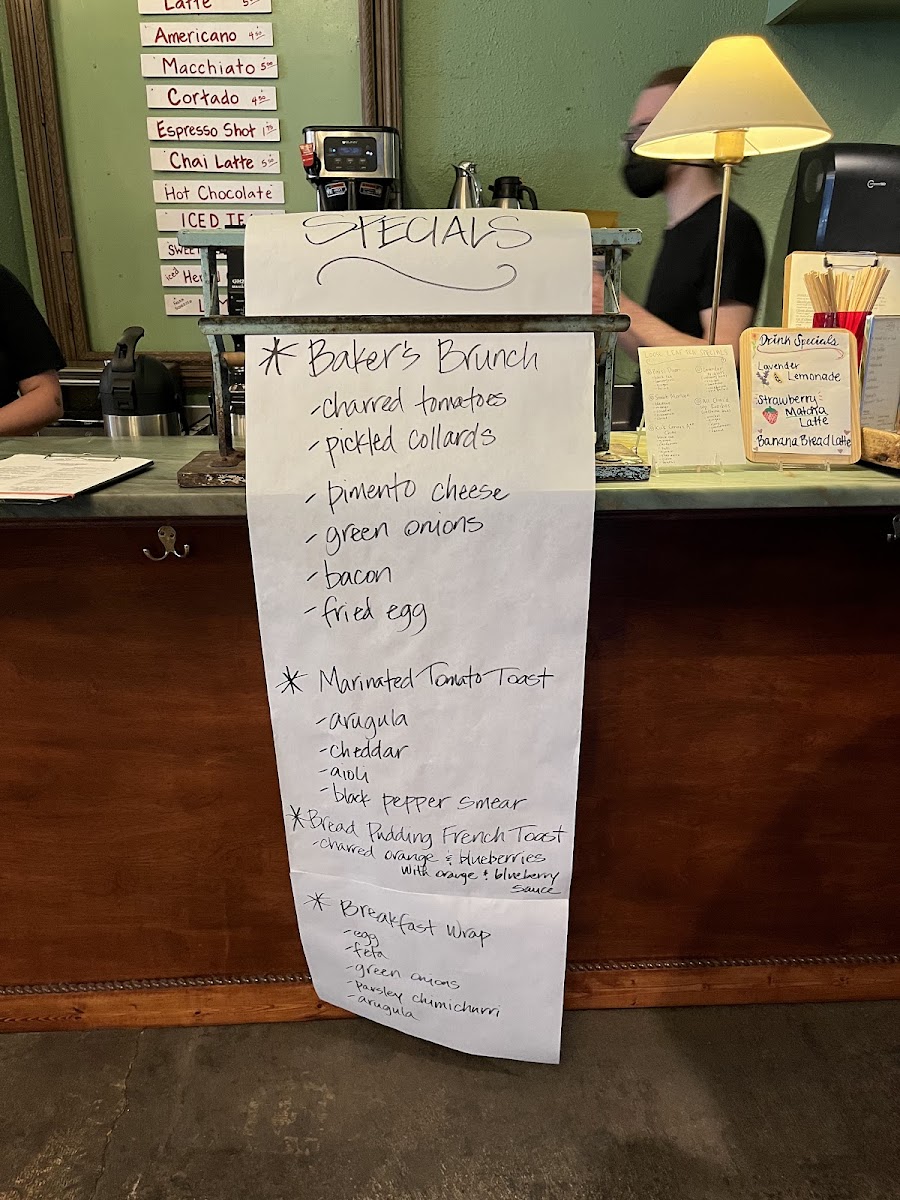 Latte
Americano 4.50
Macchiato 5.00
Cortado 4.50
Espresso Shot 1.75
Chai Latte 5.50
Hot Chocolate
ICED TE
SWEET
iced Her
SPECIALS
* Baker's Brunch
-charred tomatoes
-pickled collards
-pimento cheese
-green onions
-bacon
-fried egg
* Marinated Tomato Toast
-arugula
-cheddar
-aioli
-black pepper smear
*Bread Pudding French Toast
-charred orange & blueberries
with orange & blueberry
sauce
* Breakfast Wrap
-egg
-feta
-green onions
-parsley chimichurri
-arugula
LOOSE LEAF TEA SPECIALS
Drink Specials
Lavender
Lemonade
Strawberry
Matcha
Latte
Banana Bread Latte